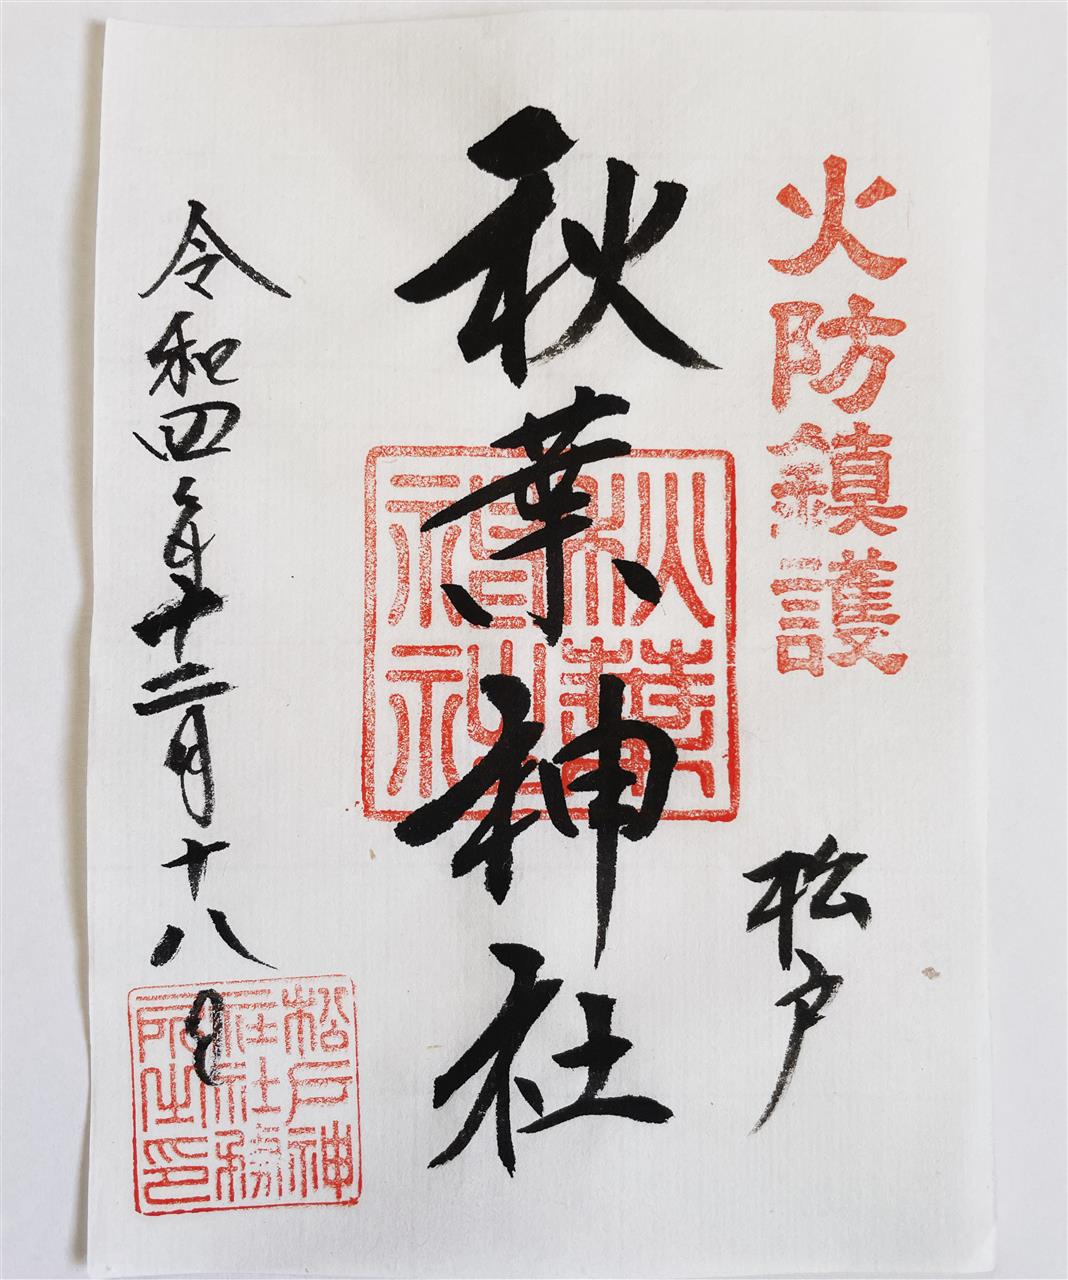 火防鎮護
松戸
秋葉神社
秋葉
神社
令和四年十二月十八日
松戸神
社社務
所之印